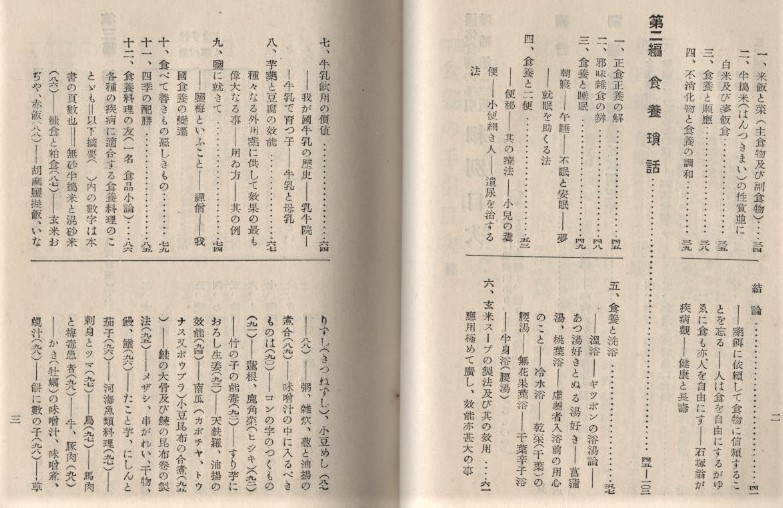 二
一、米飯と菜(主食物及び副食物)……三四
二、牛搗米(はんつきまい)の性質並に
白米及び麥飯食……三五
三、食養と順應……三九
四、不消化物と食養の調和……三九
結論……四一
——藥餌に依賴して食物に信賴するこ
とを忘る——人は食を自由にするがゆ
ゑに食も亦人を自由にす——石塚翁が
疾病觀——健康と長壽
第二編 食養瑣話……四五—一〇二
一、正食正養の解……四五
二、邪味雜食の辨……四八
三、食養と睡眠……四九
朝寢——午睡——不眠と安眠——夢
——就眠を助くる法
四、食養と二便……五三
便——便秘 其の療法——小兒の糞
便——小便繁き人——遺尿を治する
法
五、食養と沐浴……五七
——溫浴——ギツポンの浴湯論——
あつ湯好きとぬる湯好き——菖蒲
湯、桃葉湯——虛弱者入浴前の用心
のこと——冷水浴——乾葉(干葉)の
腰湯——無花果葉浴——干葉辛子浴
——半身浴(腰湯)
六、玄米スープの製法及び其の效用……六一
應用極めて廣し、效能亦甚大の事
七、牛乳飮用の價値……六四
——我が國牛乳の歷史——乳牛院——
——牛乳で育つ子——牛乳と母乳
八、芋藥と豆腐の效能……六七
種々なる外用藥に供して效果の最も
偉大なる事——用ゐ方——其の例
九、鹽に就きて……七四
——鹽梅といふこと——禪僧——我
國食養の變遷
十、食べて善きもの惡しきもの……七九
十一、四季の配膳……八五
十二、食養料理の友(一名 食品小論)……八六
各種の疾病に適合する食養料理のこ
とゞも——以下摘要( )內の數字は本
書の頁數也——無砂牛搗米と混砂米
(八六)——糠食と粕食(八七)——玄米お
ぢや、赤飯(八)——胡麻鹽握飯、いな
りずし(きつねずし)、小豆めし(八七
—八)——粥、雜炊、葱と油揚の
煮合(九一)——味噌汁の中に入るべき
ものは(九一)——コンの字のつくもの
(九二)——蓮根、鹿角菜(ヒジキ)(九三)
——竹の子の能毒(九三)——すり芋に
おろし生姜(九三)——天麩羅、油揚の
效能(九四)——南瓜(カボチヤ、トウ
ナス又ボウブラ)小豆昆布の合煮(九五
)——鮭の大骨及び鰊の昆布卷の製
法(九五)——メザシ、串がれい、干物、
鰻、鱧(九六)——たこと芋、にしんと
茄子(九六)——河海魚類料理(九七)——
刺身とツマ(九七)——鳥(九七)——馬肉
と梅毒患者(九八)——牛、豚肉(九八)
——かき(牡蠣)の味噌汁、味噌煮、
蜆汁(九八)——餠に數の子(九八)——草
三